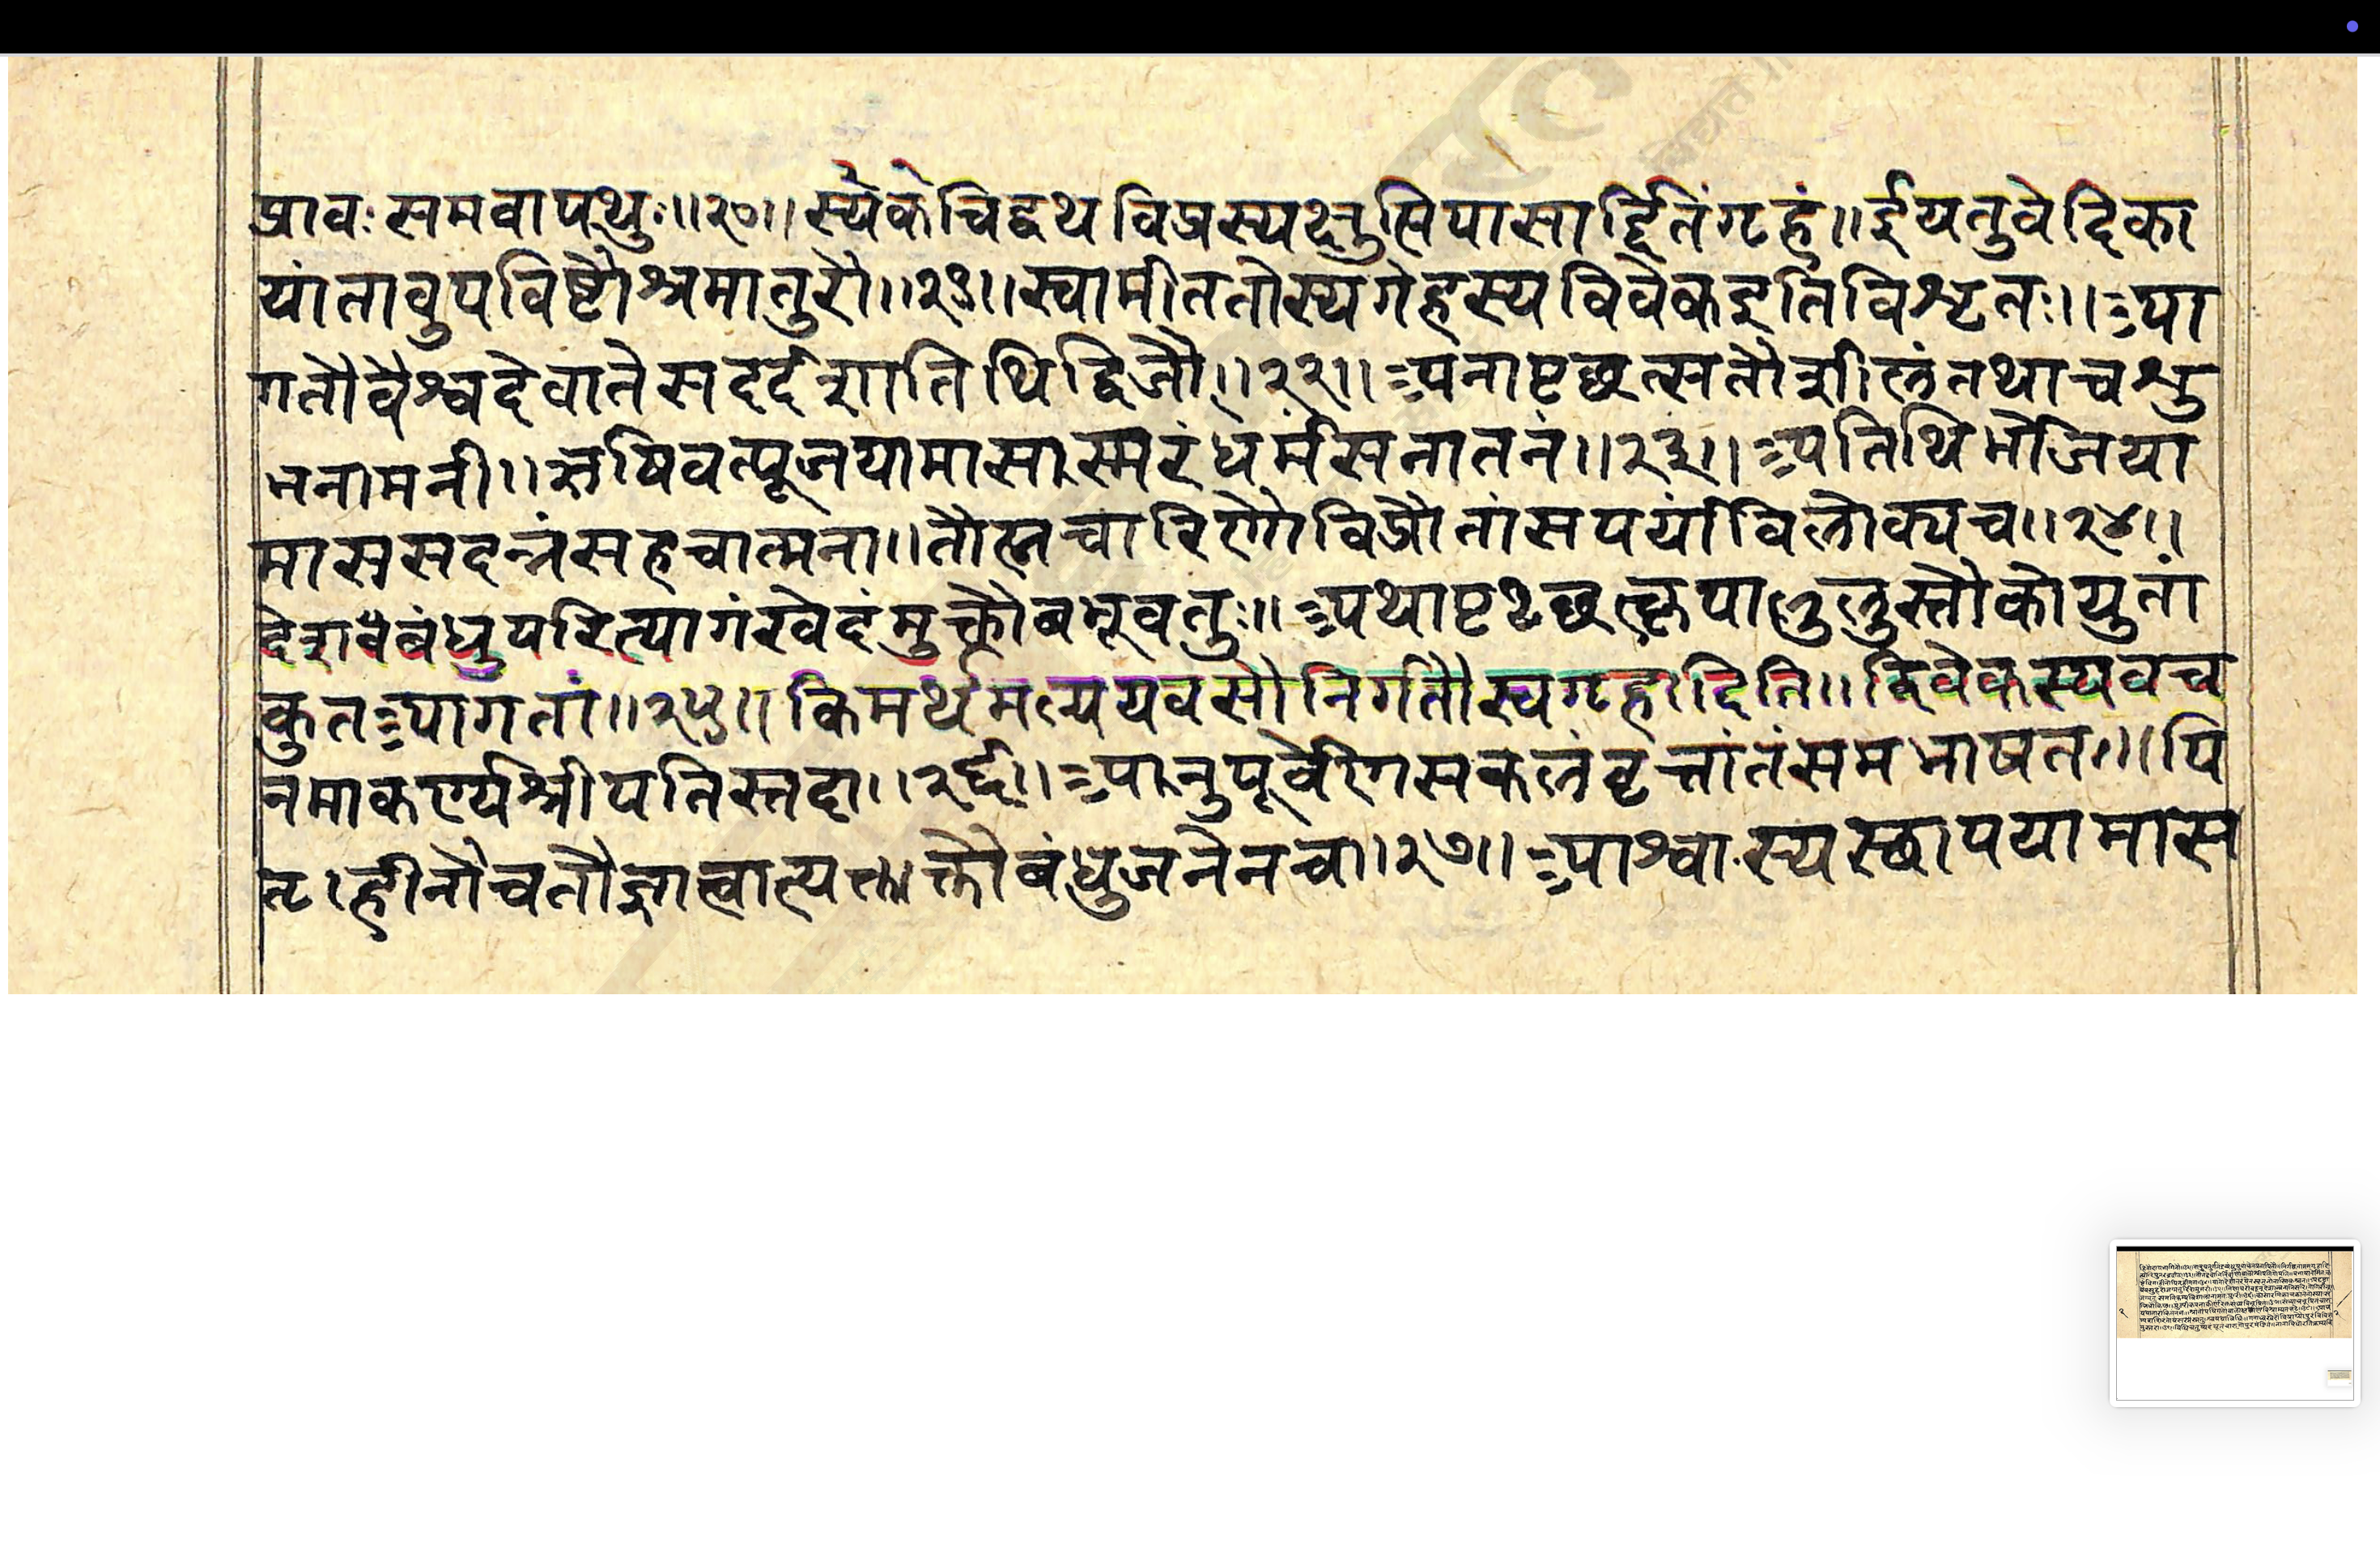 प्रावः समवापथुः ॥२०॥ स्येकेचिद्वथविप्रस्यक्षुत्पिपासार्द्दितंगृहं ॥ ईयतुवेदिका
यांतावुपविष्टौश्रमातुरौ ॥२१॥ स्वामीततोस्यगेहस्यविवेकइतिविश्रृतः ॥ आ
गतौवैश्वदेवातेसददर्शातिथिद्विजौ ॥२२॥ अनापृछत्सतौशीलंतथाचश्रु
भनामनी ॥ ऋषिवत्पूजयामासास्मरंधर्मसनातनं ॥२३॥ अतिथिभोजया
माससदन्नंसहचात्मना ॥ तौब्रह्मचारिणौविप्रौतांसपर्यांविलोक्यच ॥२४॥
देशबंधुपरित्यागंखेदंमुक्तौबभूवतुः ॥ अथापृछत्कृपालुस्तौकोयुतां
कुतआगतां ॥२५॥ किमर्थमल्पयवसौनिर्गतौस्वगृहादिति ॥ विवेकस्यवच
नमाकर्ण्यश्रीपतिस्तदा ॥२६॥ आनुपूर्वेणसकलंवृत्तांतंसमभाषत ॥ पि
तृहीनौचतौज्ञात्वात्यक्तौबंधुजनेनचा ॥२७॥ आश्वास्यस्छापयामास